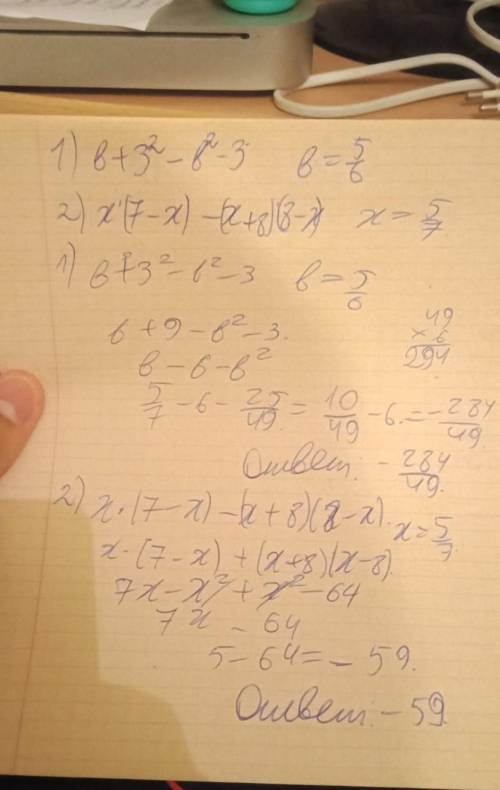 1) в + 3² - в² - 3 в = 5/6
2) x·(7 - x) - (x+8)(8-x) x = 5/7
1) в + 3² - в² - 3 в = 5/6
в + 9 - в² - 3.
в - 6 - в²
49
× 6
294
5/7 - 6 - 25/49 = 10/49 - 6. = - 284/49.
Ответ: - 284/49.
2) x·(7 - x) - (x + 8)(8 - x). x = 5/7
x·(7 - x) + (x+8)(x - 8).
7x - x² + x² - 64
7x - 64
5 - 64 = - 59.
Ответ: - 59.